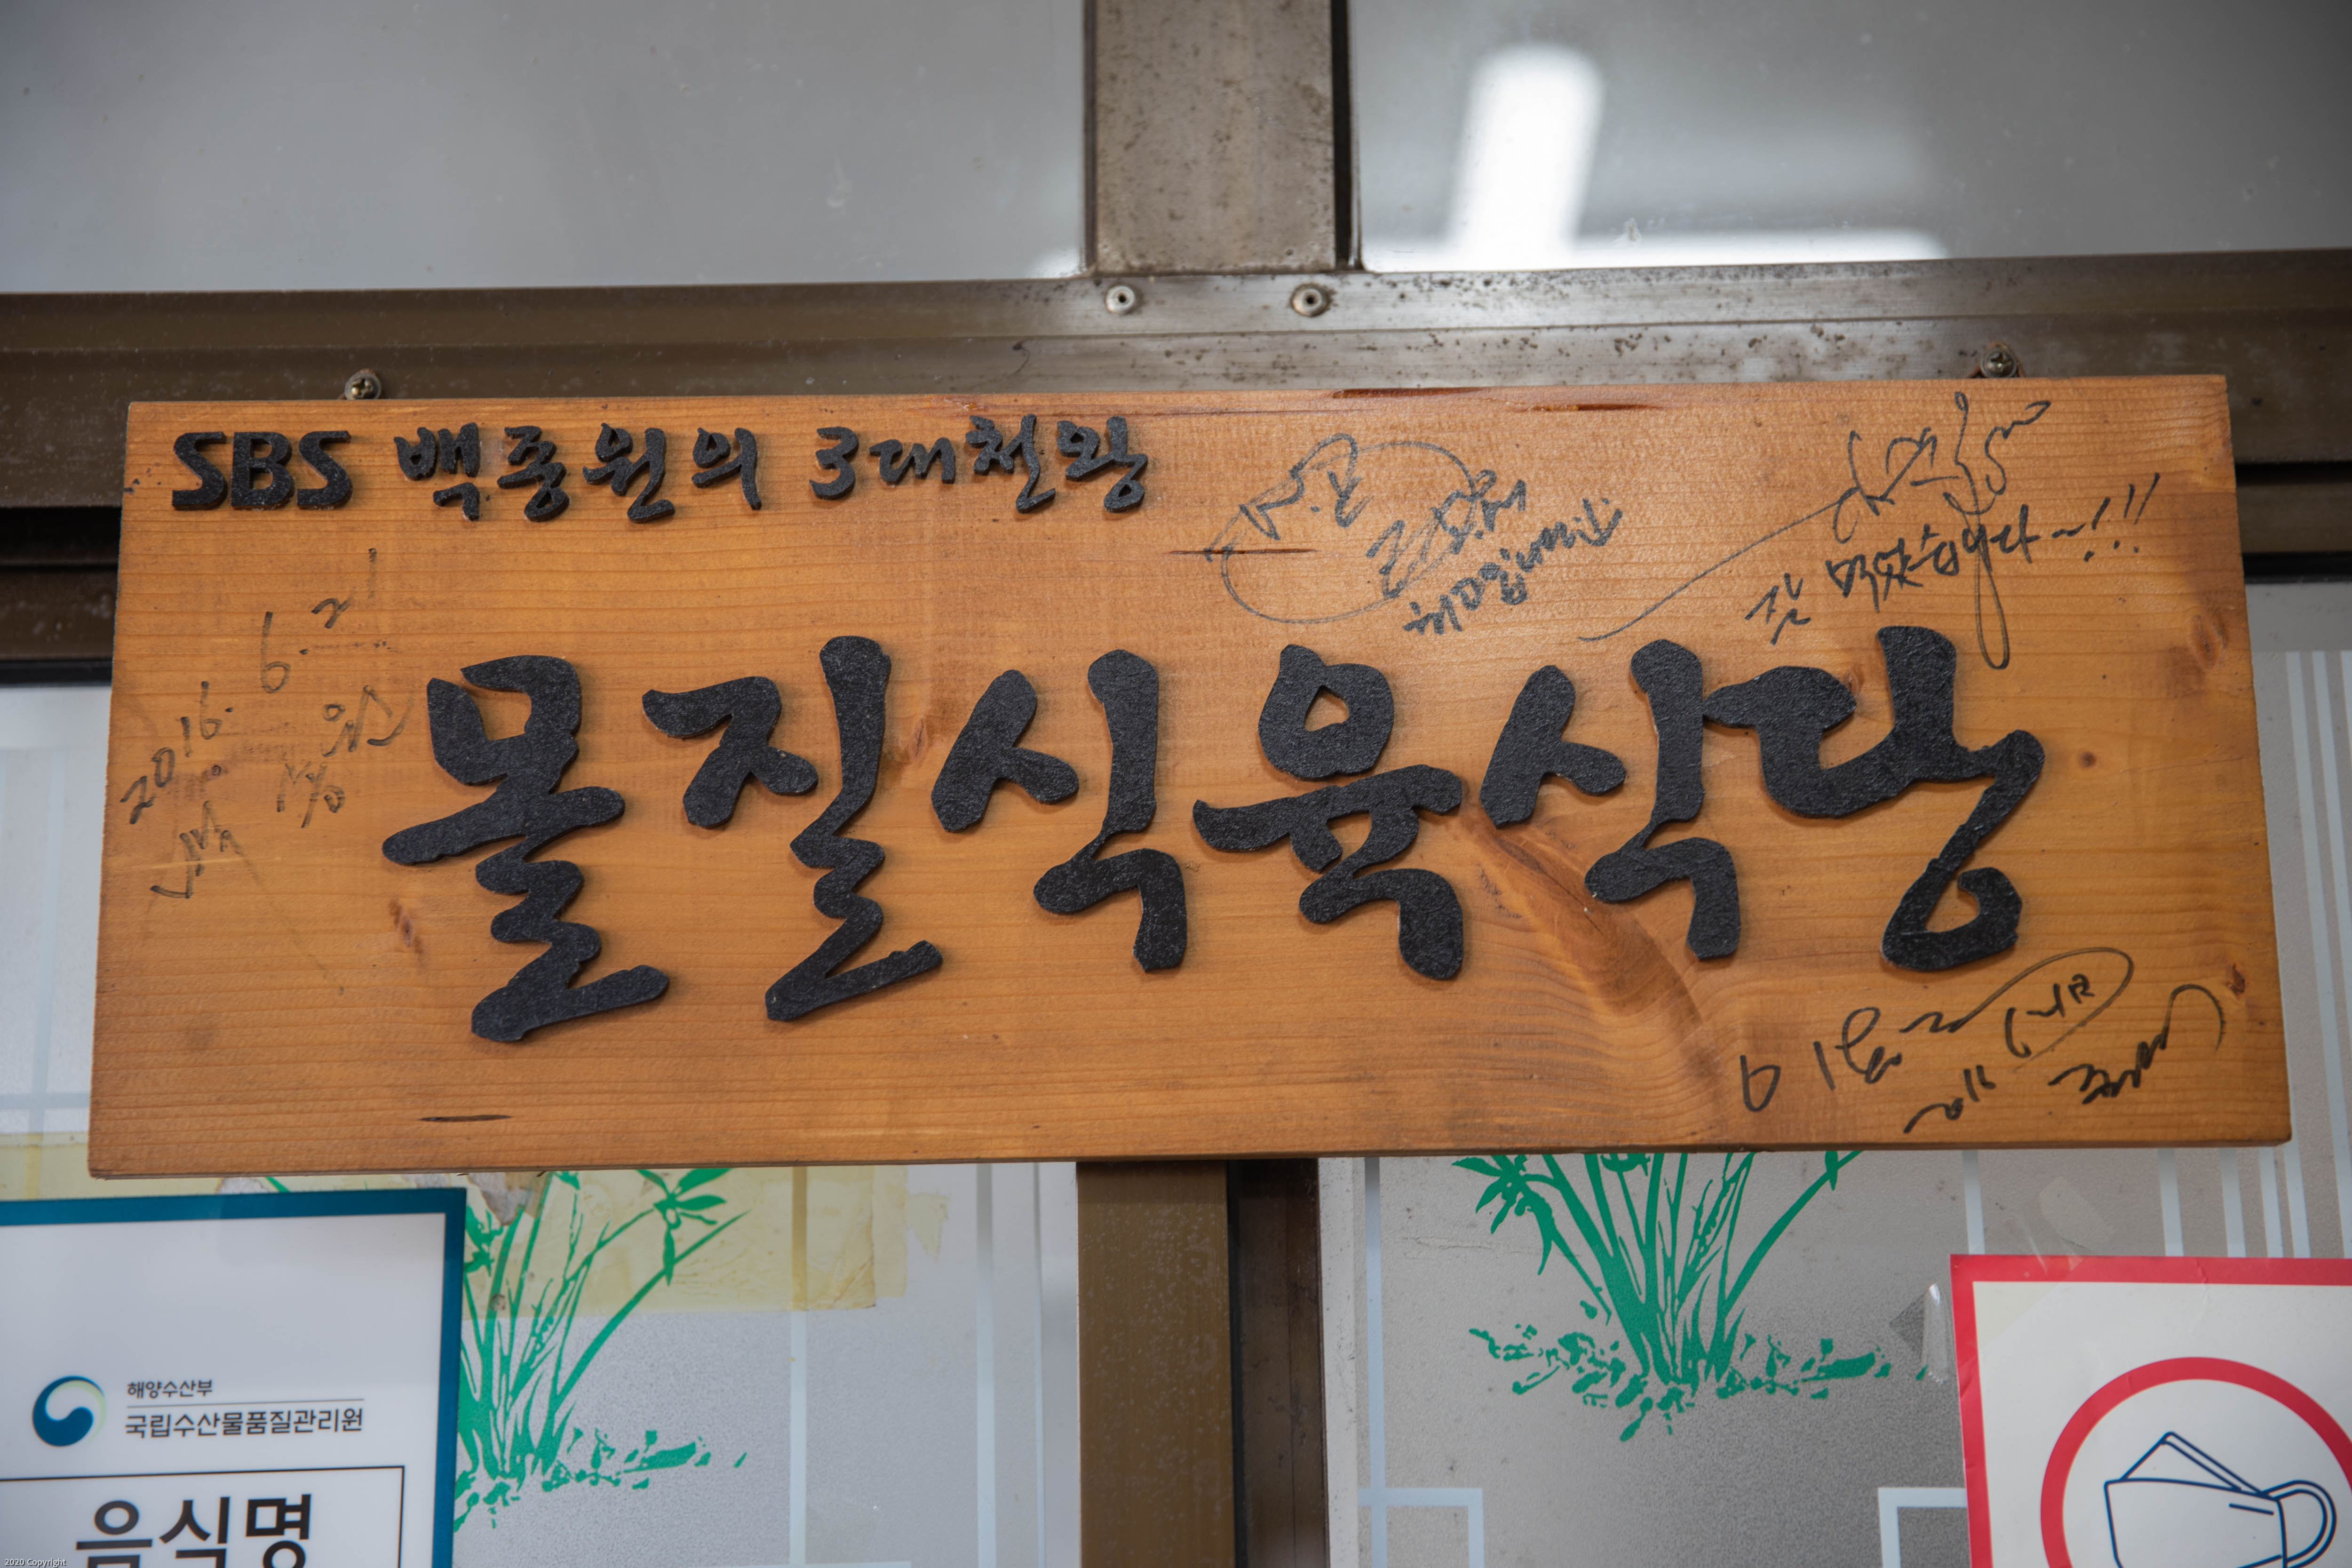 SBS 백종원의 3대천왕
잘 먹었습니다~!!!
2016. 6. 21
몰질식육식당
해양수산부
국립수산물품질관리원
음식명
2020 Copyright